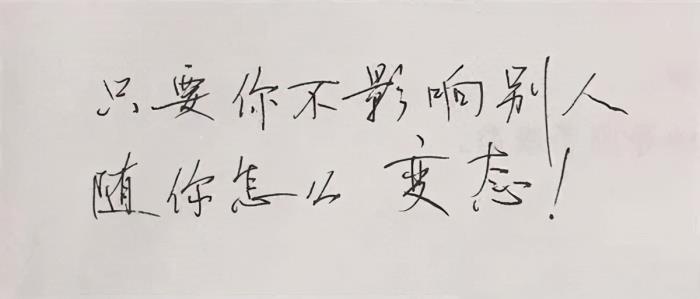 只要你不影响别人
随你怎么变态!